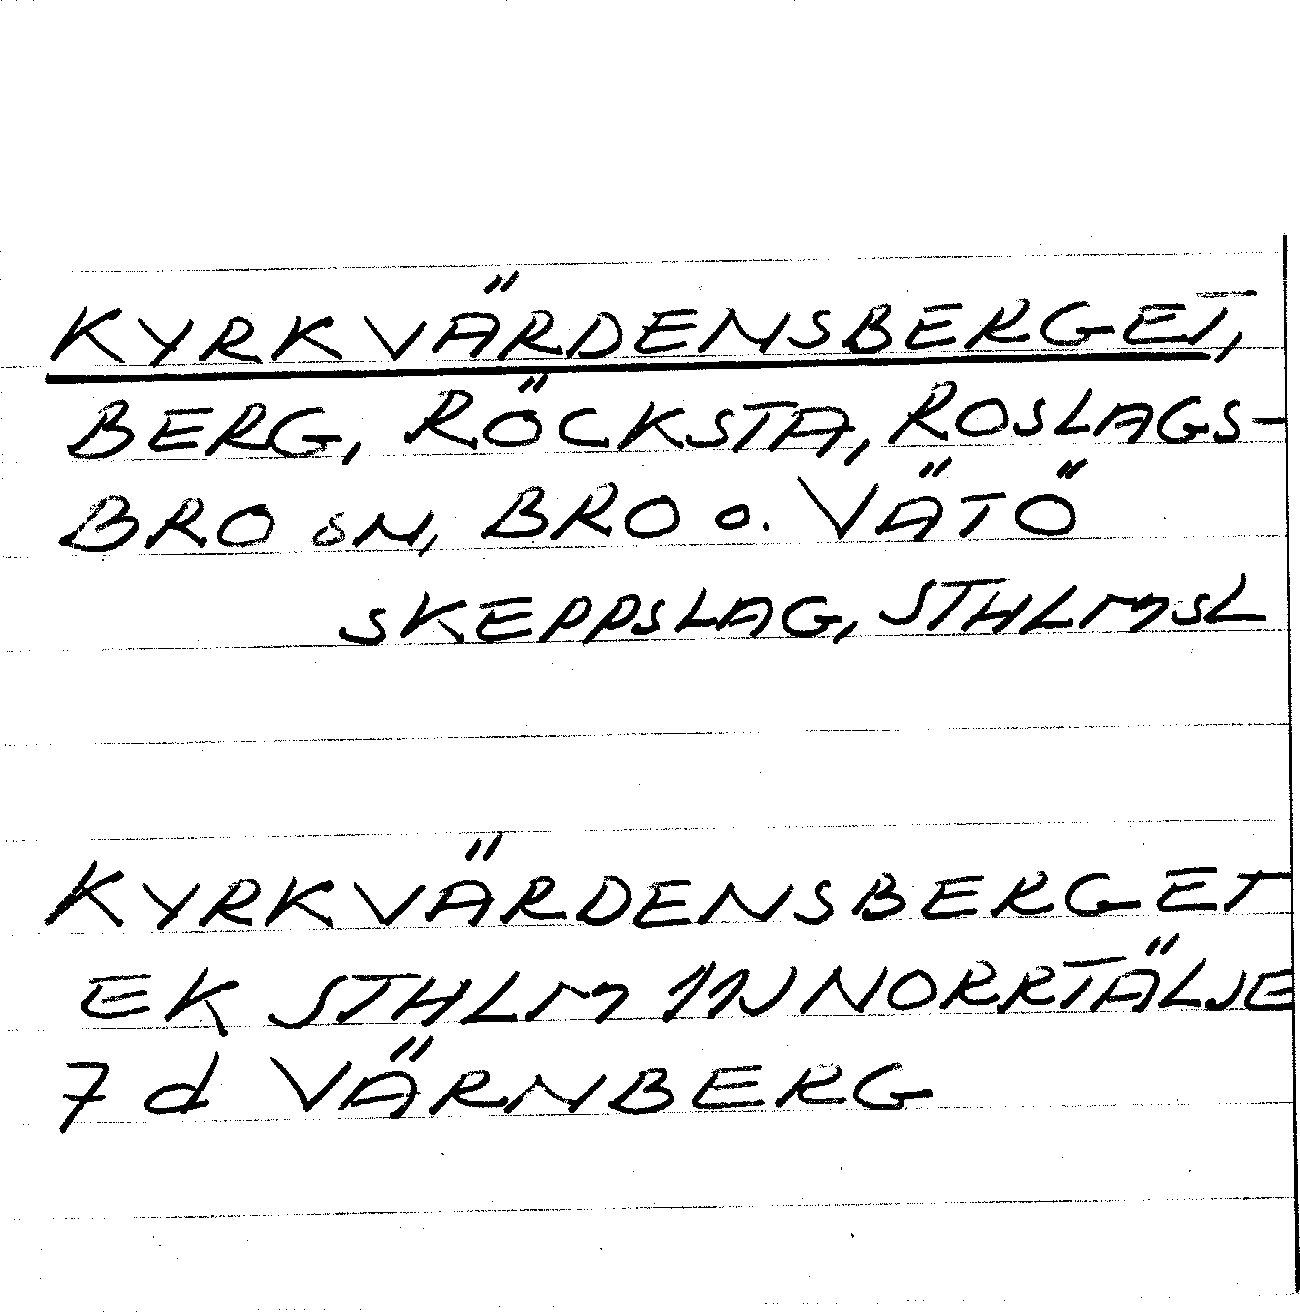 KYRKVÄRDENSBERGET,
BERG, RÖCKSTA, ROSLAGS-
BRO SN, BRO O. VÄTÖ
SKEPPSLAG, STHLMSL
KYRKVÄRDENSBERGET
EK STHLM 11J NORRTÄLJE
7 d VÄRNBERG